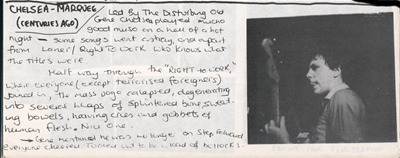 CHELSEA - MARQUEE
(CENTURIES AGO)
Led By The Disturbing Old
Gene Chelsea played mucho
good music on a hell of a hot
night — some songs went astray, and apart
from Loner / Right To Work who knows what
The titles were
Half way through the "RIGHT TO WORK,"
where everyone (except terrorised foreigners)
joined in, The mass pogo collapsed, degenerating
into several heaps of splintered bone, sweat-
ing bowels, heaving crles and gobbets of
human flesh. Nice One.
Gene mentioned he was no longer on Step Forward
everyone cheered. Turned out to be a load of bollocks.